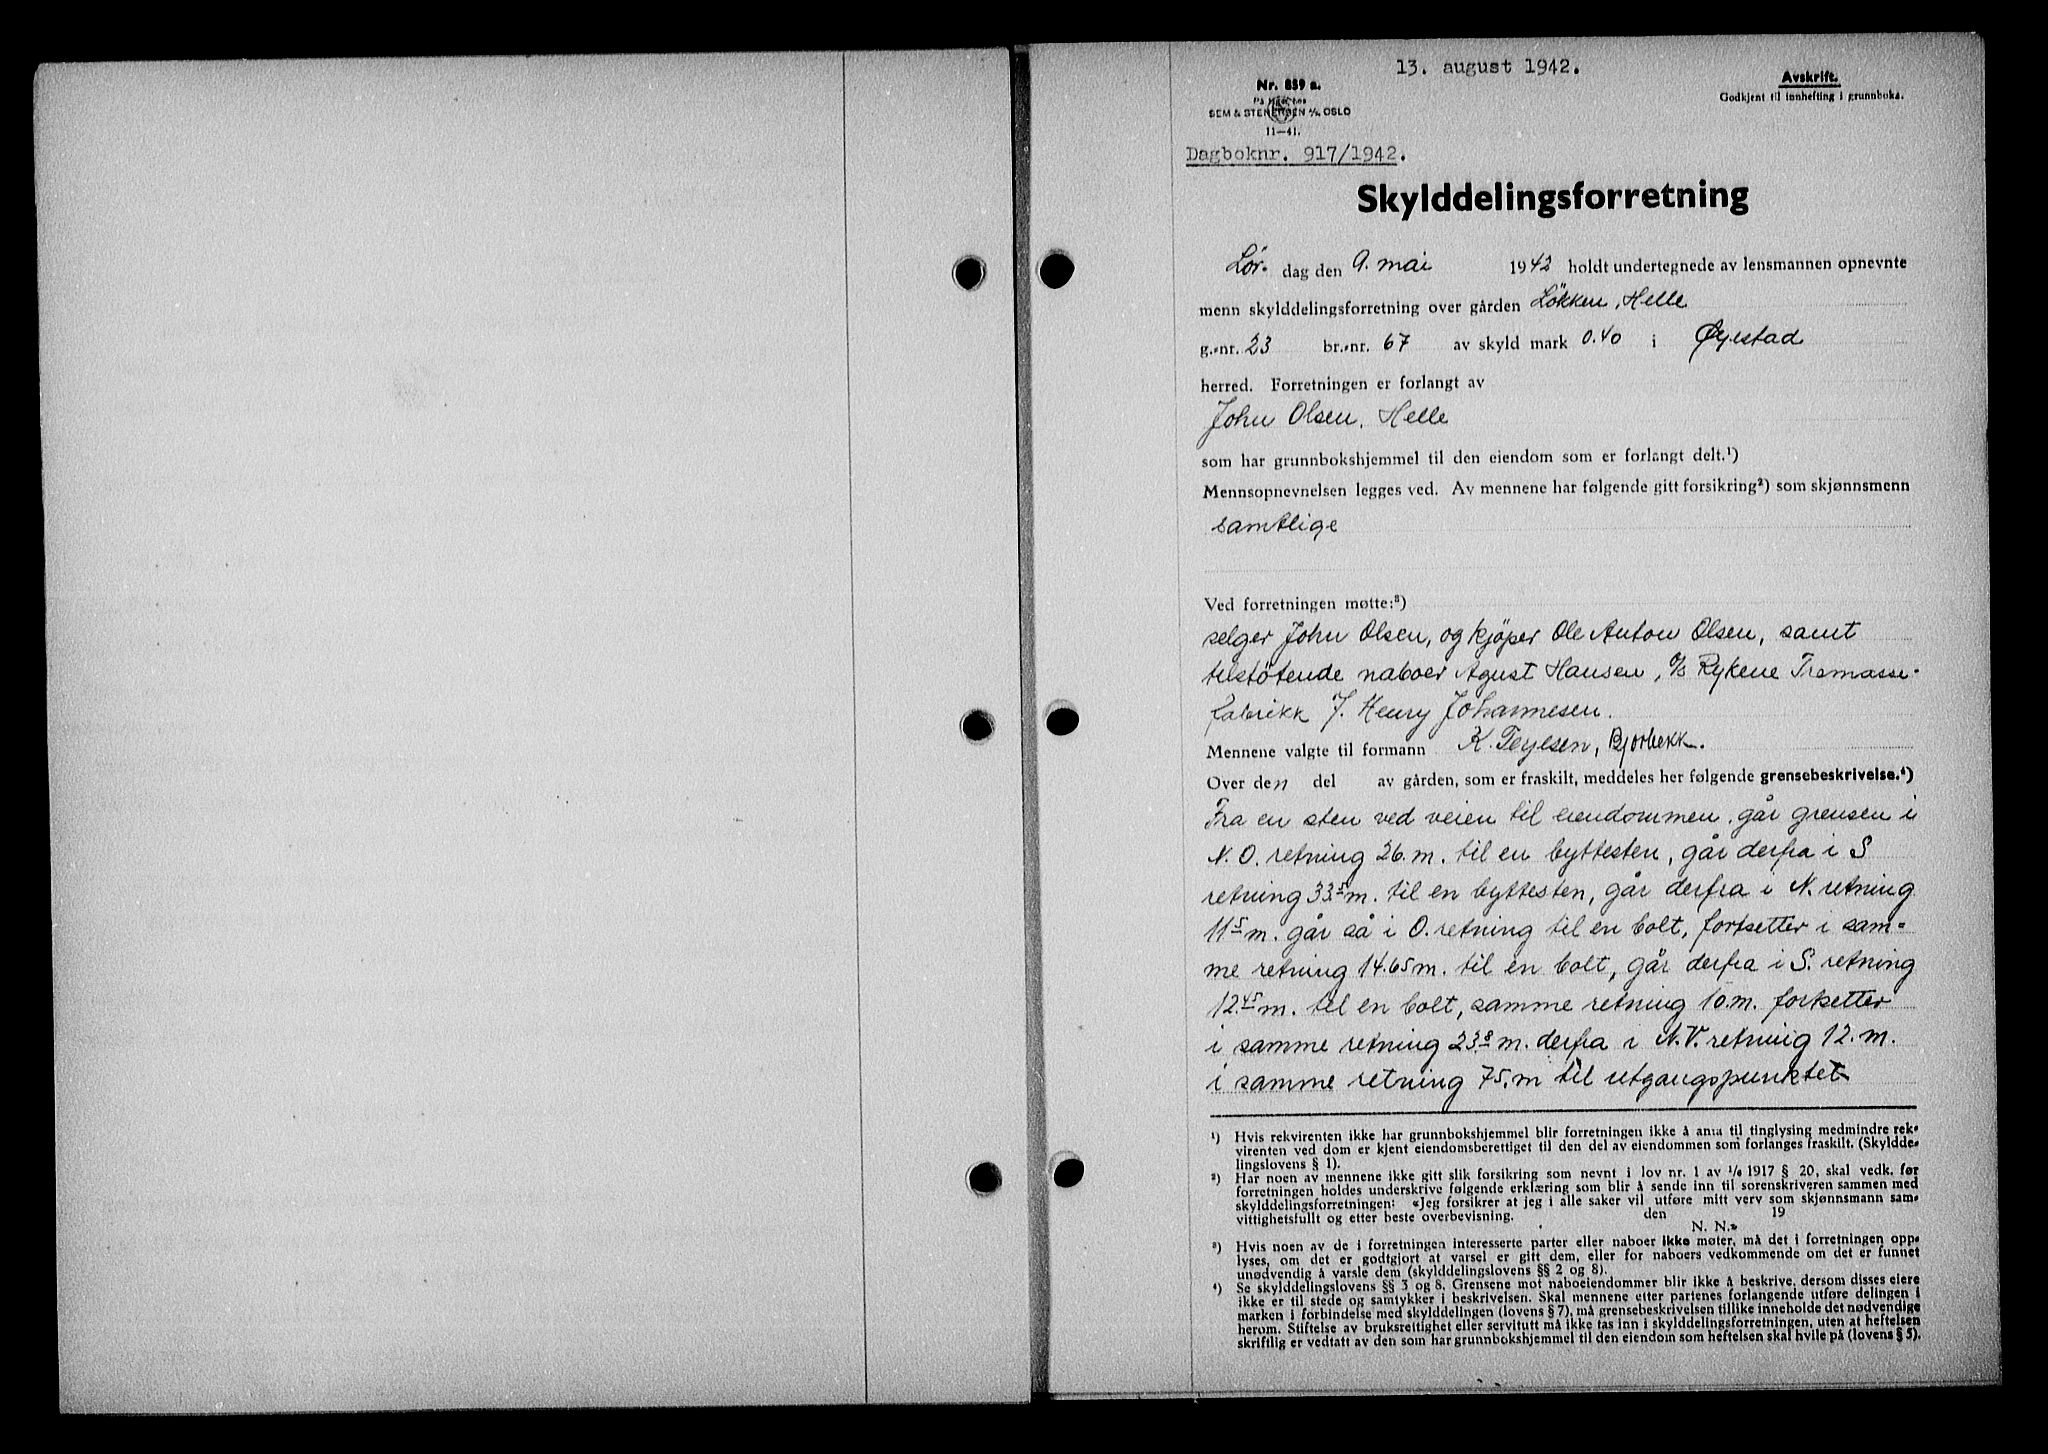 13. august 1942.
Nr. 859 a.
På lager hos
SEM & STENERSEN A/S OSLO
11—41.
Avskrift.
Godkjent til innhefting i grunnboka.
Dagboknr. 917/1942.
Skylddelingsforretning
Lør- dag den 9. mai 1942 holdt undertegnede av lensmannen opnevnte
menn skylddelingsforretning over gården Løkken, Helle
g.-nr. 23 br.-nr. 67 av skyld mark 0.40 i Øyestad
herred. Forretningen er forlangt av
John Olsen, Helle
som har grunnbokshjemmel til den eiendom som er forlangt delt.¹)
Mennsopnevnelsen legges ved. Av mennene har følgende gitt forsikring²) som skjønnsmenn
samtlige
Ved forretningen møtte:³)
selger John Olsen, og kjöper Ole Anton Olsen, samt
tilstötende naboer Agust Hansen, A/S Rykene Tremasse-
fabrikk J. Henry Johannesen.
Mennene valgte til formann K. Terjesen, Bjorbekk.
Over den del av gården, som er fraskilt, meddeles her følgende grensebeskrivelse.⁴)
Fra en sten ved veien til eiendommen går grensen i
N.O. retning 26.m. til en byttesten, går derfra i S
retning 33.5 m. til en byttesten, går derfra i N. retning
11.5 m. går så i O. retning til en bolt, fortsetter i sam-
me retning 14.65 m. til en bolt, går derfra i S. retning
12.45 m. til en bolt, samme retning 10.m. fortsetter
i samme retning 23.8 m. derfra i N.V. retning 12.m.
i samme retning 75.m til utgangspunktet
¹) Hvis rekvirenten ikke har grunnbokshjemmel blir forretningen ikke å anta til tinglysing medmindre rek-
virenten ved dom er kjent eiendomsberettiget til den del av eiendommen som forlanges fraskilt. (Skyldde-
lingslovens § 1).
²) Har noen av mennene ikke gitt slik forsikring som nevnt i lov nr. 1 av 1/6 1917 § 20, skal vedk. før
forretningen holdes underskrive følgende erklæring som blir å sende inn til sorenskriveren sammen med
skylddelingsforretningen: «Jeg forsikrer at jeg i alle saker vil utføre mitt verv som skjønnsmann sam-
vittighetsfullt og etter beste overbevisning. den 19
N. N.»
³) Hvis noen av de i forretningen interesserte parter eller naboer ikke møter, må det i forretningen opp-
lyses, om det er godtgjort at varsel er gitt dem, eller for naboers vedkommende om det er funnet
unødvendig å varsle dem (skylddelingslovens §§ 2 og 8).
⁴) Se skylddelingslovens §§ 3 og 8. Grensene mot naboeiendommer blir ikke å beskrive, dersom disses eiere
ikke er til stede og samtykker i beskrivelsen. Skal mennene etter partenes forlangende utføre delingen i
marken i forbindelse med skylddelingen (lovens § 7), må grensebeskrivelsen tillike inneholde det nødvendige
herom. Stiftelse av bruksrettighet eller servitutt må ikke tas inn i skylddelingsforretningen, uten at heftelsen
skriftlig er vedtatt av den som har grunnbokshjemmel til den eiendom som heftelsen skal hvile på (lovens § 5).